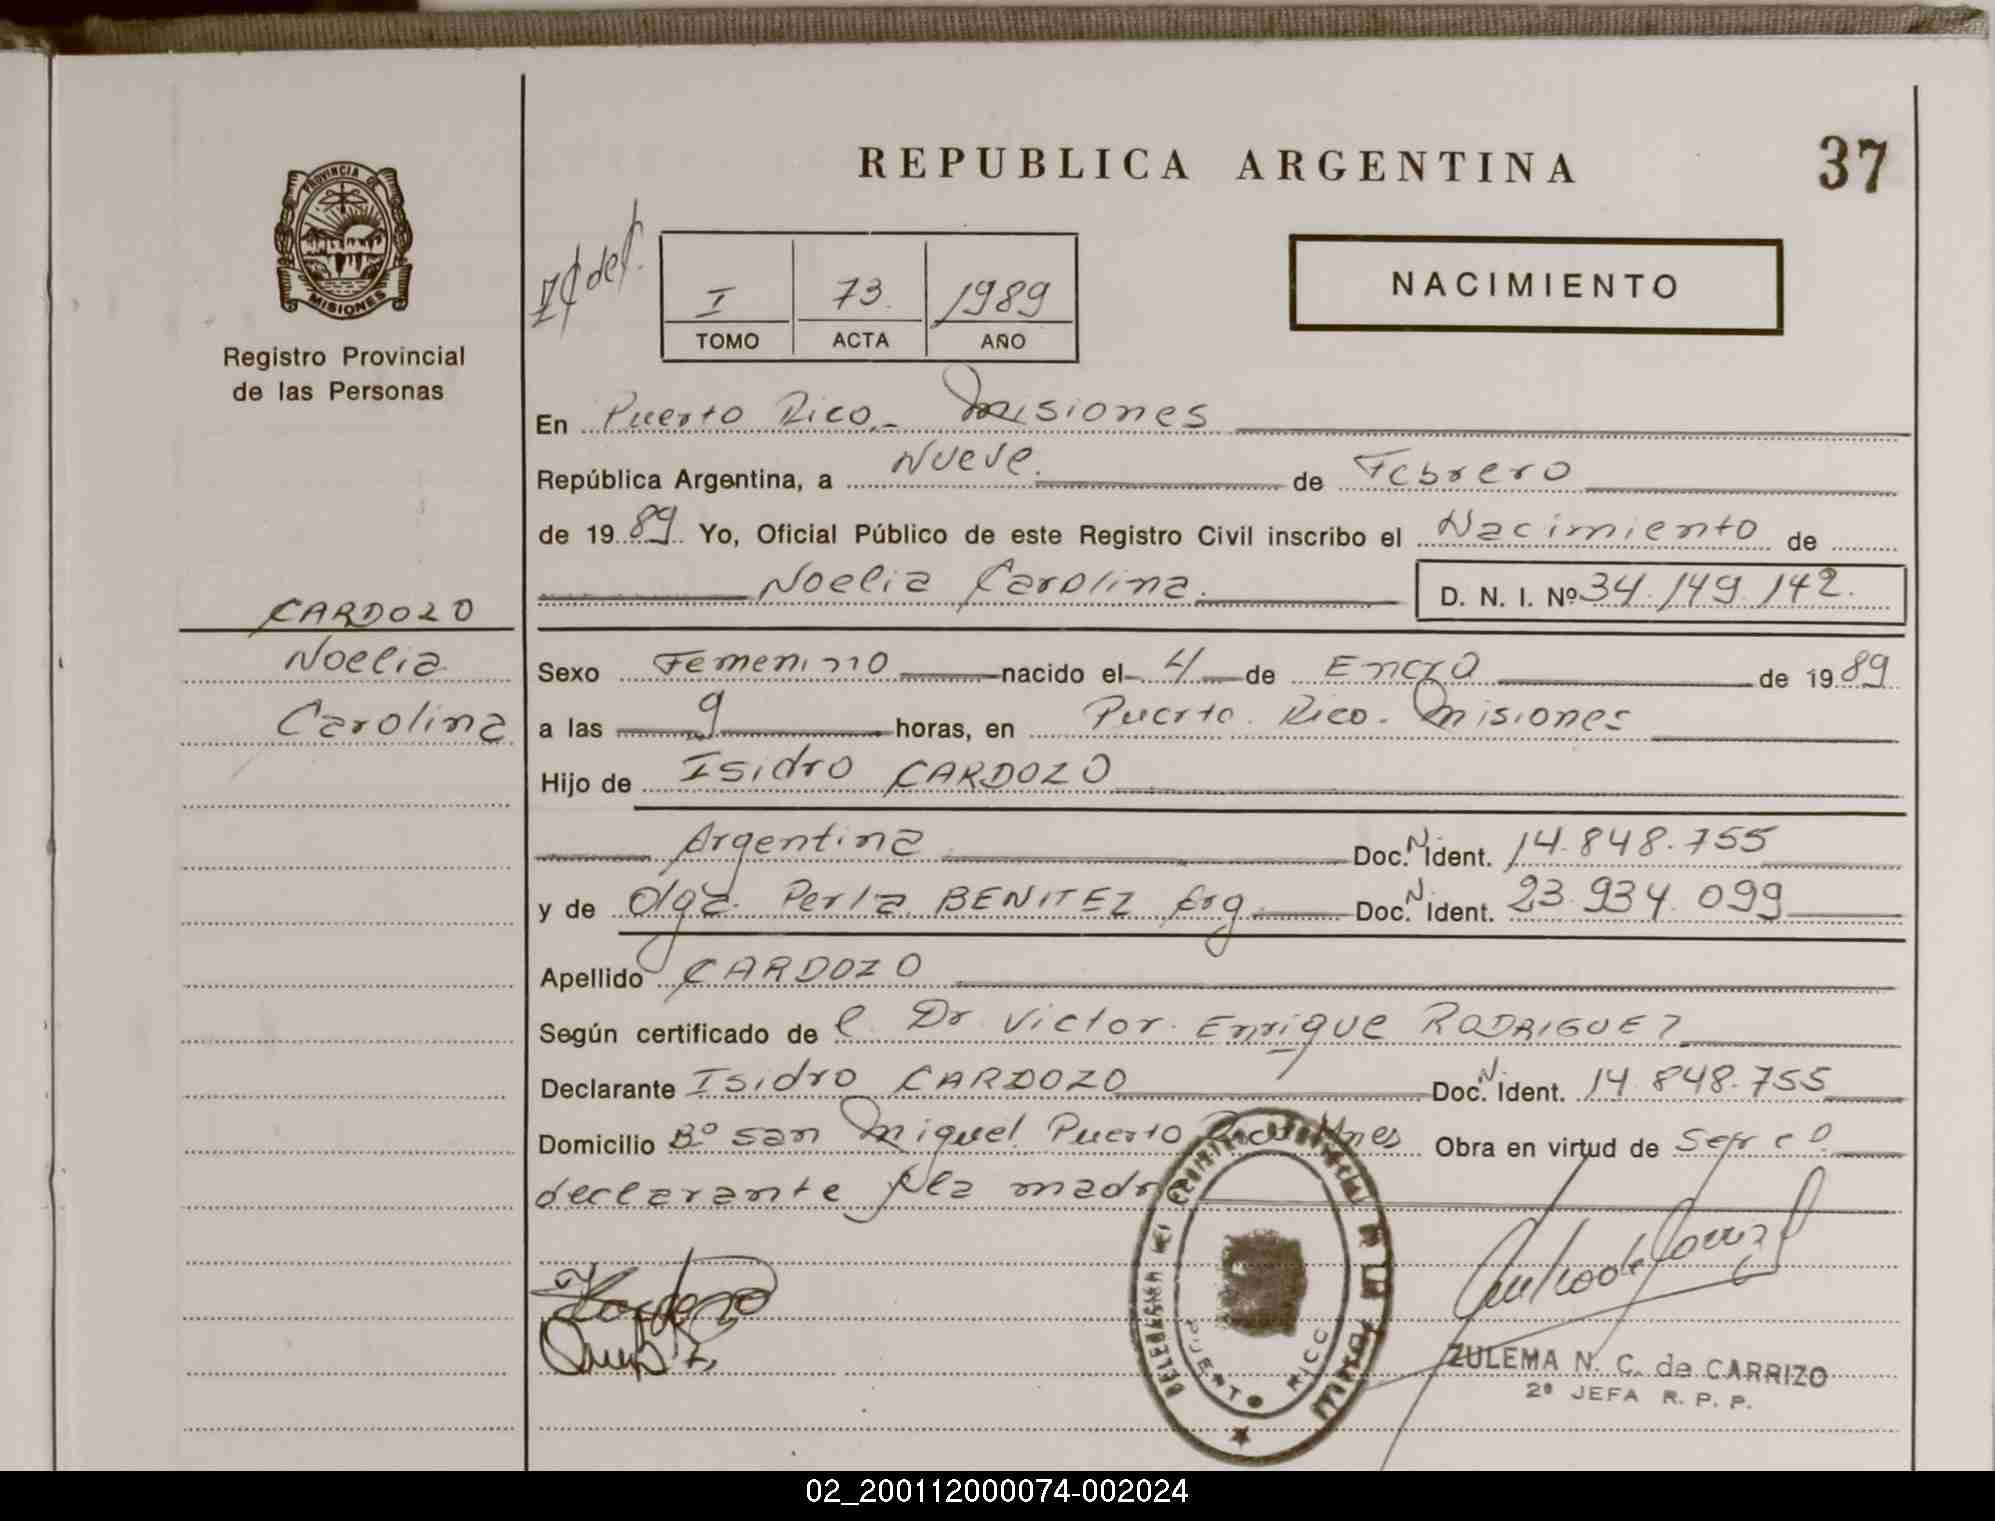 REPUBLICA ARGENTINA
37
PROVINCIA DE
MISIONES
Registro Provincial
de las Personas
I 73. 1989
TOMO ACTA AÑO
NACIMIENTO
En Puerto Rico.- Misiones
República Argentina, a Nueve. de Febrero
de 1989 Yo, Oficial Público de este Registro Civil inscribo el Nacimiento de
Noelia Carolina. D. N. I. Nº 34.149.142.
CARDOZO
Noelia
Carolina
Sexo Femenino nacido el 4 de Enero de 1989
a las 9 horas, en Puerto. Rico. Misiones
Hijo de Isidro CARDOZO
Argentina Doc. N. Ident. 14.848.755
y de Olga. Perla BENITEZ Arg Doc. N. Ident. 23.934.099
Apellido CARDOZO
Según certificado de el Dr Victor. Enrique RODRIGUEZ
Declarante Isidro CARDOZO Doc. N. Ident. 14.848.755
Domicilio Bº San Miguel Puerto Rico Mnes Obra en virtud de Ser el
declarante y la madre
PUERTO RICO
ZULEMA N. C. de CARRIZO
2º JEFA R. P. P.
02_200112000074-002024